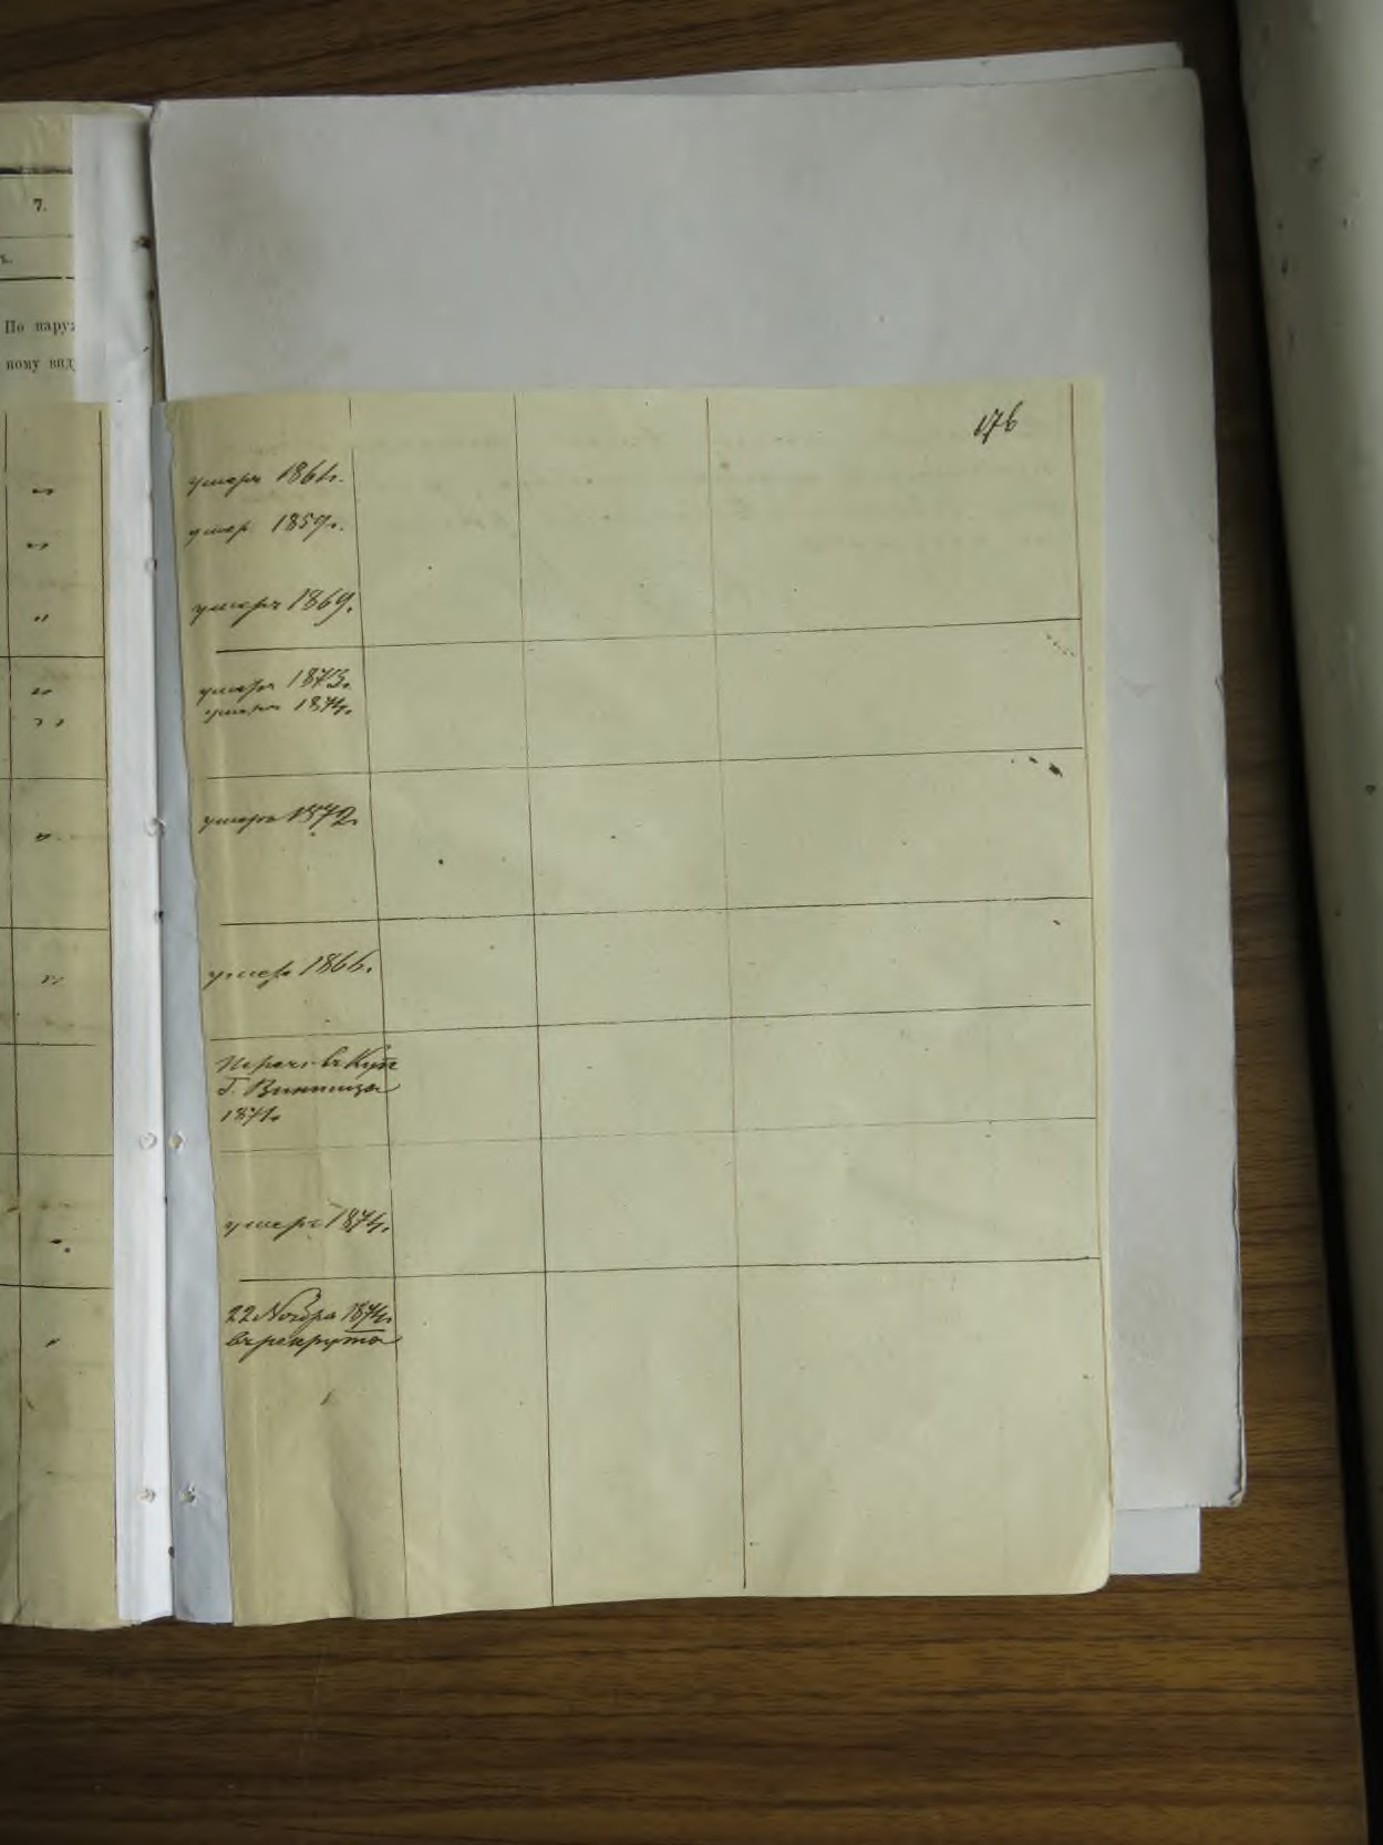 7.
ъ.
По наруж
ному вид
176
умеръ 1864г.
умер. 1859г.
умеръ 1869.
умеръ 1873.
умеръ 1874.
умеръ 1872.
умеръ 1866.
Переч. въ Куп
Г. Винница
1871.
умеръ 1874.
22 Ноября 1874г.
въ рекрута